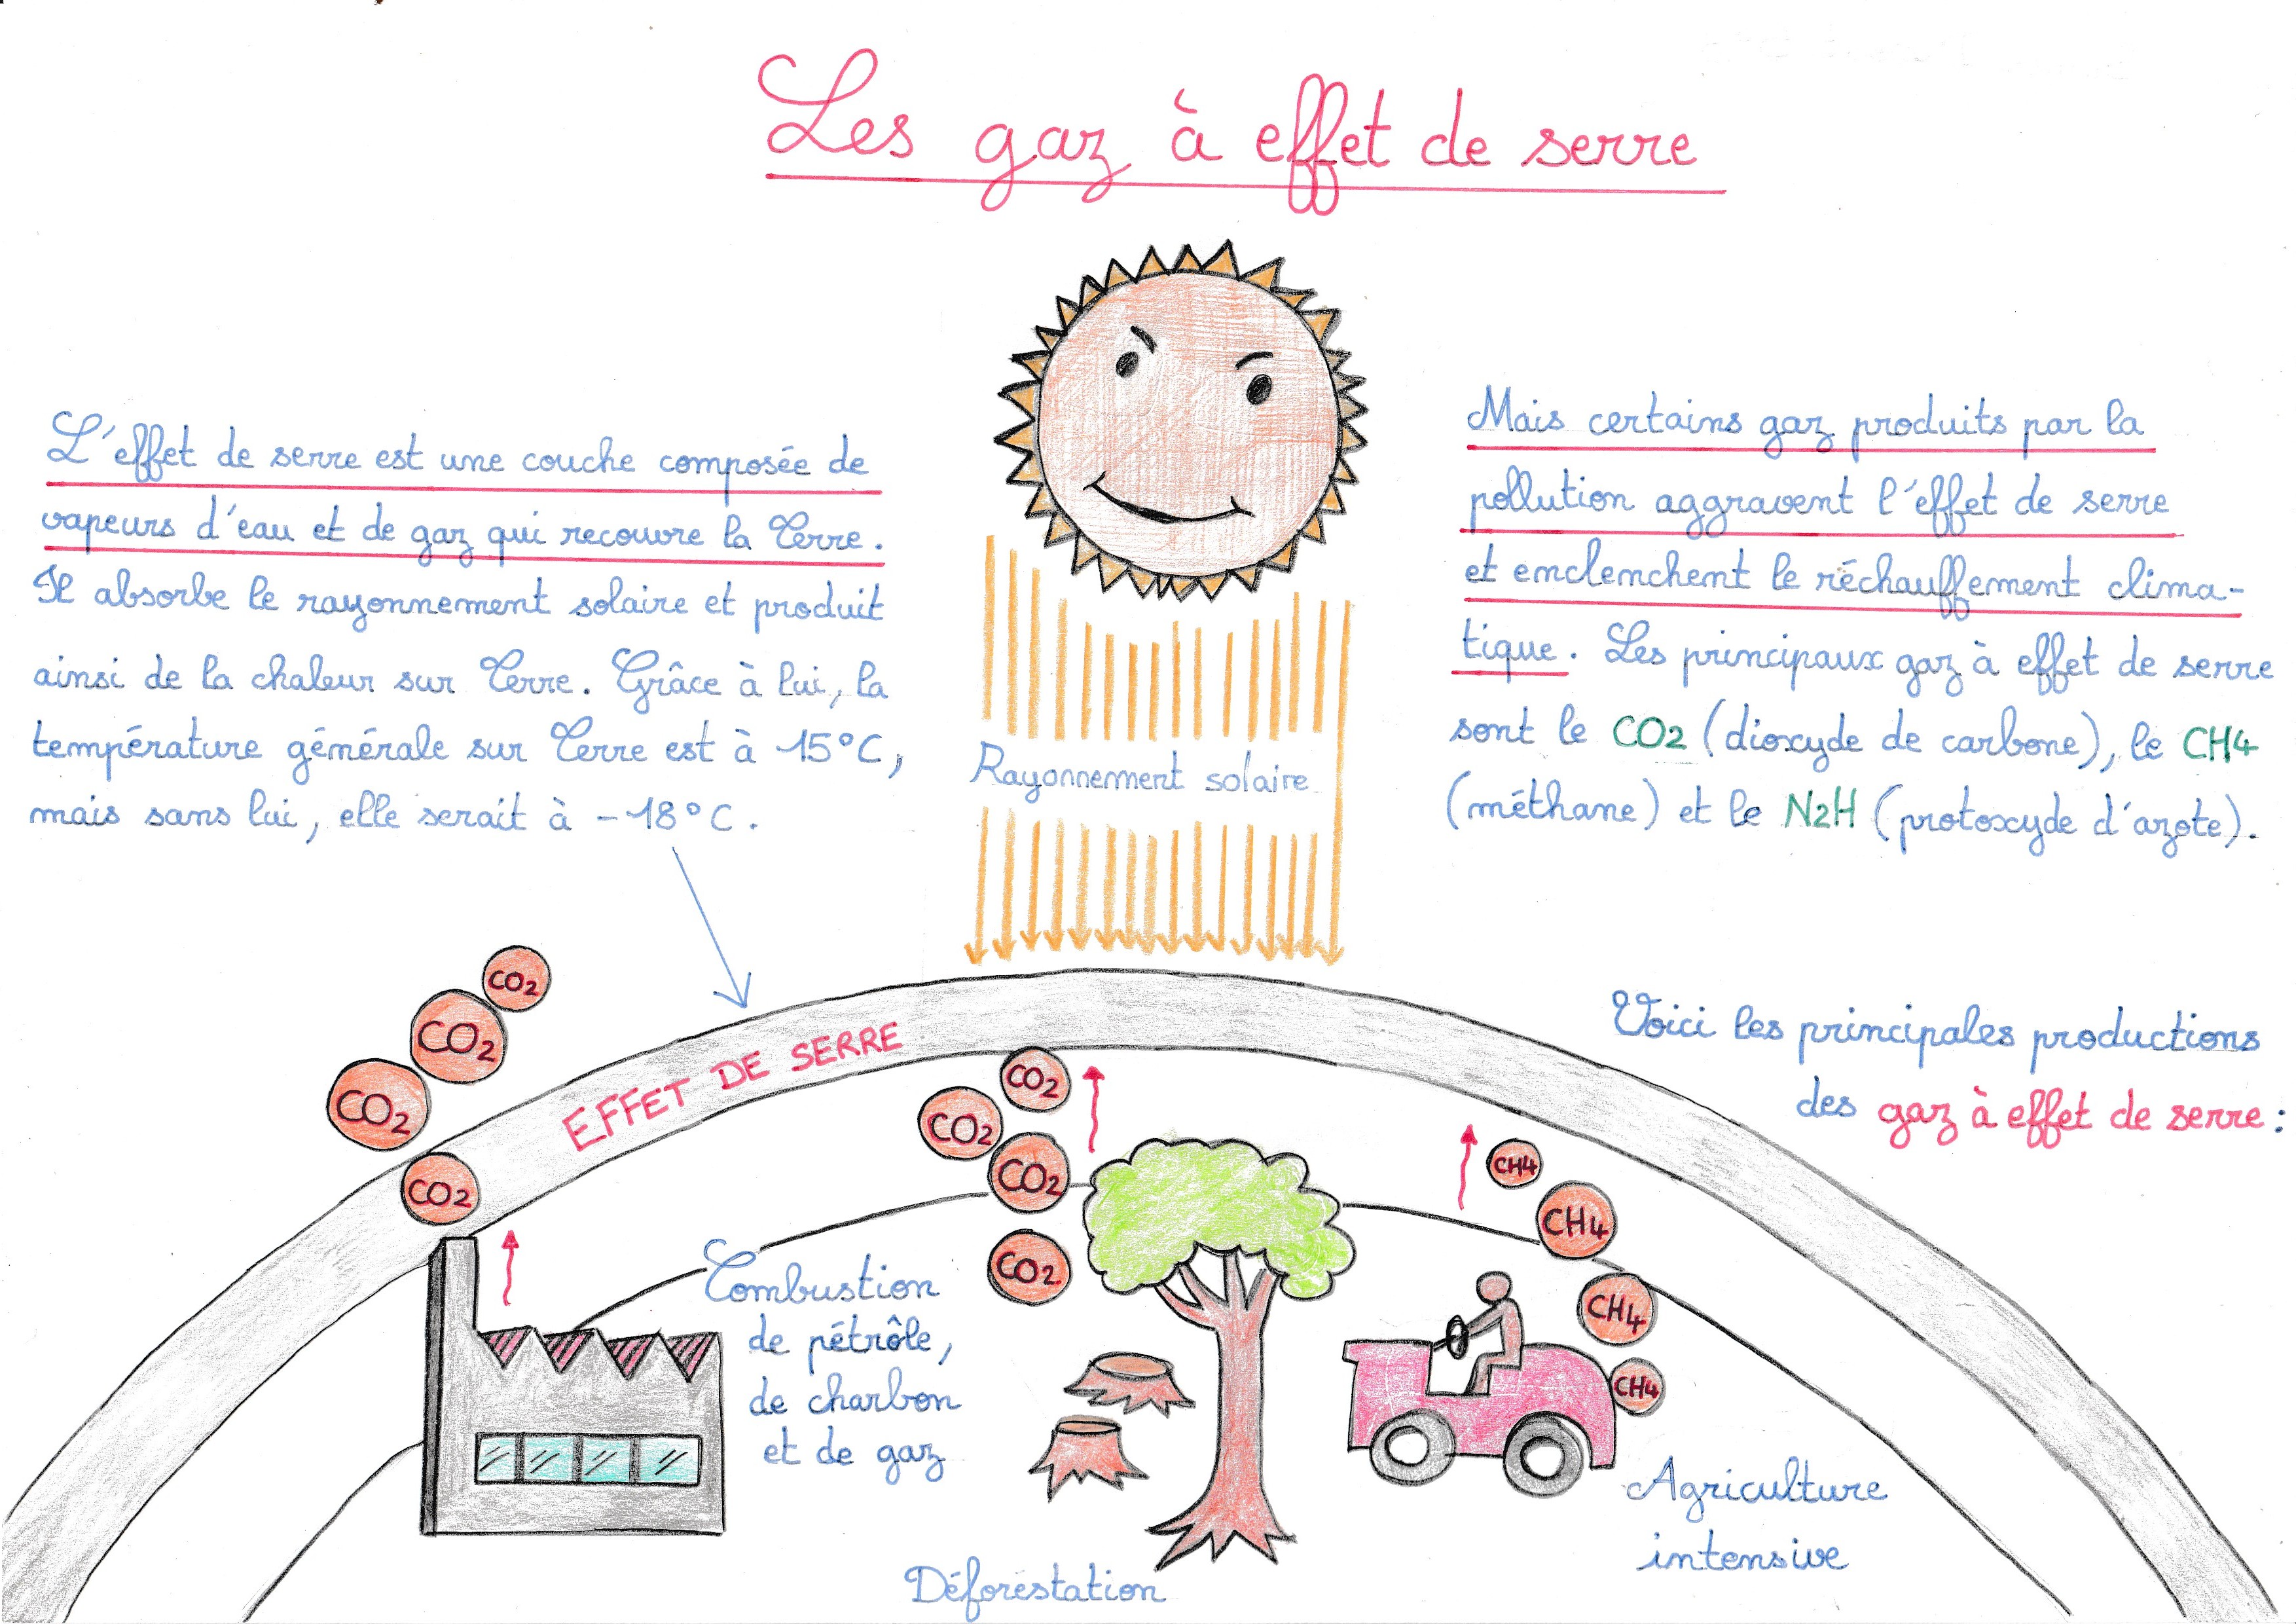 Les gaz à effet de serre
L'effet de serre est une couche composée de
vapeurs d'eau et de gaz qui recouvre la Terre.
Il absorbe le rayonnement solaire et produit
ainsi de la chaleur sur Terre. Grâce à lui, la
température générale sur Terre est à 15°C,
mais sans lui, elle serait à -18°C.
Mais certains gaz produits par la
pollution aggravent l'effet de serre
et enclenchent le réchauffement clima-
tique. Les principaux gaz à effet de serre
sont le CO2 (dioxyde de carbone), le CH4
(méthane) et le N2H (protoxyde d'azote).
Rayonnement solaire
Voici les principales productions
des gaz à effet de serre :
EFFET DE SERRE
CO2
CO2
CO2
CO2
CO2
CO2
CO2
CO2
CH4
CH4
CH4
CH4
Combustion
de pétrôle,
de charbon
et de gaz
Déforéstation
Agriculture
intensive